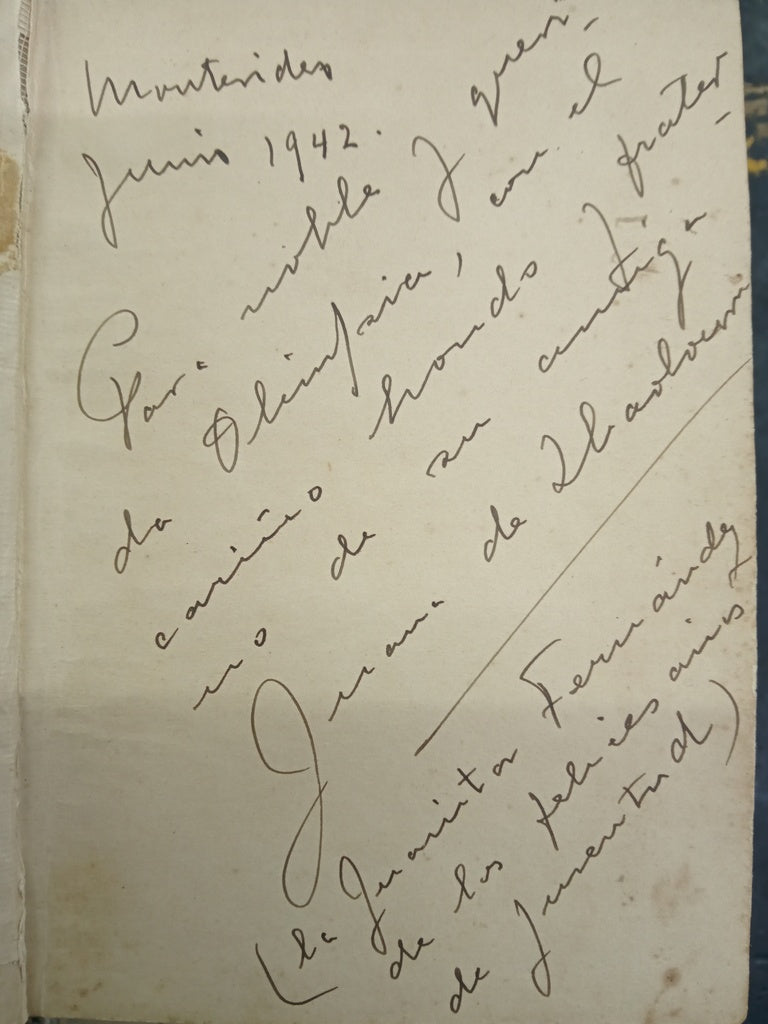 Montevideo
Junio 1942.
Para noble y queri-
da Olimpia, con el
cariño hondo y frater-
no de su antigª
Juana de Ibarbourou
(la Juanita Fernández
de los felices años
de juventud)